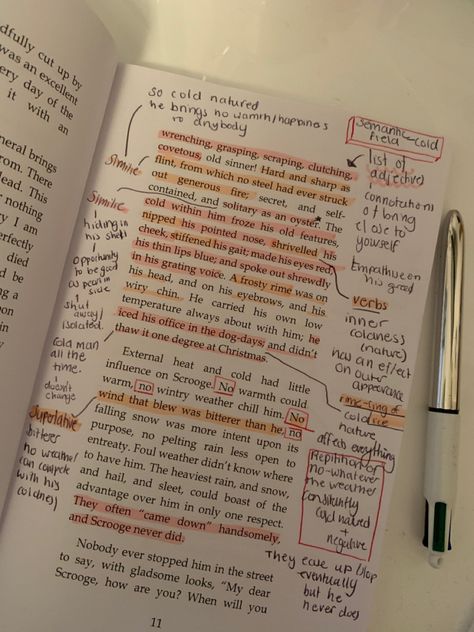 dfully cut up by
was an excellent
ery day of the
it with an
neral brings
rom. There
lead. This
nothing
ry I am
erfectly
died
d be
g a
So cold natured
he brings no warmth/happiness
to anybody
wrenching, grasping, scraping, clutching,
covetous, old sinner! Hard and sharp as
flint, from which no steel had ever struck
out generous fire; secret, and self-
contained, and solitary as an oyster. The
cold within him froze his old features,
nipped his pointed nose, shrivelled his
cheek, stiffened his gait; made his eyes red,
his thin lips blue; and spoke out shrewdly
in his grating voice. A frosty rime was on
his head, and on his eyebrows, and his
wiry chin. He carried his own low
temperature always about with him; he
iced his office in the dog-days; and didn't
thaw it one degree at Christmas.
External heat and cold had little
influence on Scrooge. No warmth could
warm, no wintry weather chill him. No
wind that blew was bitterer than he, no
falling snow was more intent upon its
purpose, no pelting rain less open to
entreaty. Foul weather didn't know where
to have him. The heaviest rain, and snow,
and hail, and sleet, could boast of the
advantage over him in only one respect.
They often "came down" handsomely,
and Scrooge never did.
Nobody ever stopped him in the street
to say, with gladsome looks, "My dear
Scrooge, how are you? When will you
11
Simile
Simile
hiding in
his shell
opportunity
to be good
as pearl in
side
shut
away/
isolated.
Cold man
all the
time.
doesn't
change
Superlative
bitterer
no weather
can compete
with his
coldness
Semantic-cold
field
list of
adjectives
connotations
of being
close to
yourself
Empathise on
his greed
verbs
inner
coldness
(nature)
has an effect
on outer
appearance
rime-ting of
cold ice
nature
affects everything
Repitition of
no-whatever
the weather
constantly
cold natured
+
negative
They ease up/stop
eventually
but he
never does